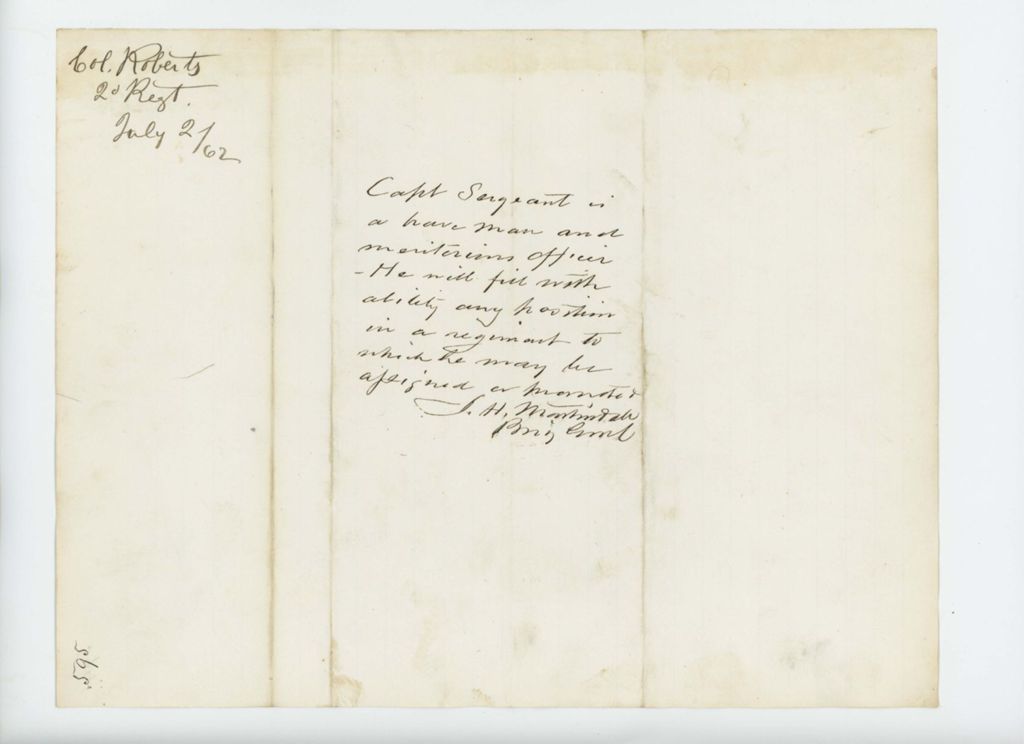 Col. Roberts
2d Regt.
July 2/62
Capt Sergeant is
a brave man and
meritorious officer
- He will fill with
ability any position
in a regiment to
which he may be
assigned or promoted
J. H. Martindale
Brig Genl